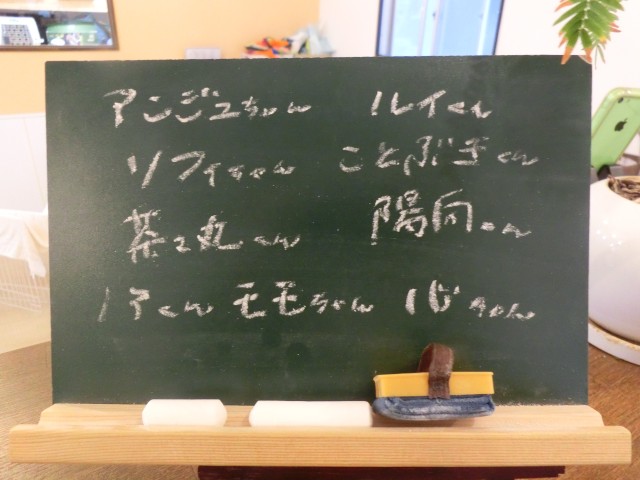 アンジュちゃん ルイくん
ソフィちゃん ことぶきくん
茶々丸くん 陽向くん
ノアくん モモちゃん ちゃん